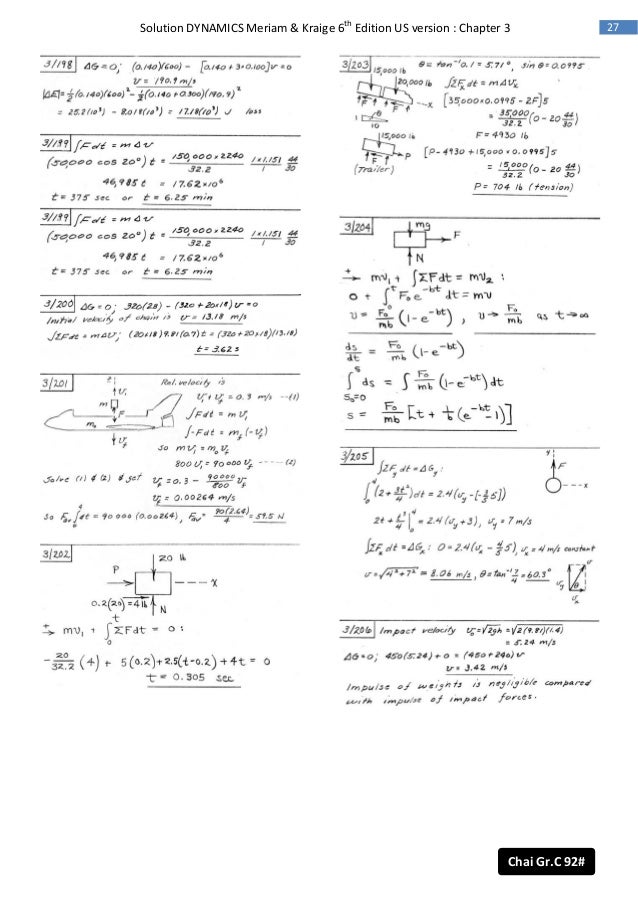 Solution DYNAMICS Meriam & Kraige 6th Edition US version : Chapter 3
27
3/198 ΔG = 0; (0.140)(600) - [0.140 + 3×0.100]v = 0
v = 190.9 m/s
|ΔE| = ½(0.140)(600)² - ½(0.140 + 0.300)(190.9)²
= 25.2(10³) - 8.018(10³) = 17.18(10³) J loss
3/199 ∫F dt = m Δv
(50,000 cos 20°) t = 150,000×2240/32.2 1×1.151/1 44/30
46,985 t = 17.62×10⁶
t = 375 sec or t = 6.25 min
3/199 ∫F dt = m Δv
(50,000 cos 20°) t = 150,000×2240/32.2 1×1.151/1 44/30
46,985 t = 17.62×10⁶
t = 375 sec or t = 6.25 min
3/200 ΔG = 0; 320(28) - (320 + 20×18) v = 0
Initial velocity of chain is v = 13.18 m/s
∫ΣF dt = mΔv; (20×18)9.81(0.7)t = (320+20×18)(13.18)
t = 3.62 s
3/201 Rel. velocity is
v₁ + v_f = 0.3 m/s --(1)
∫F dt = m v₁
∫-F dt = m_f (-v_f)
so m v₁ = m_o v_f
800 v₁ = 90 000 v_f -----(2)
Solve (1) & (2) & get v_f = 0.3 - 90000/800 v_f
v_f = 0.00264 m/s
so F_av ∫₀⁴ dt = 90 000 (0.00264), F_av = 90(2.64)/4 = 59.5 N
3/202 20 lb
P
x
0.2(20) = 4 lb N
mv₁ + ∫₀ᵗ ΣF dt = 0 :
-20/32.2 (4) + 5(0.2) + 2.5(t-0.2) + 4t = 0
t = 0.305 sec
3/203 15,000 lb θ = tan⁻¹0.1 = 5.71°, sin θ = 0.0995
20,000 lb ∫ΣFₓ dt = m Δvₓ
x [35,000×0.0995 - 2F]5
F F
1 θ 10 = 35,000/32.2 (0 - 20 44/30)
15,000 lb F = 4930 lb
P [P - 4930 + 15,000×0.0995]5
F
(Trailer) = 15,000/32.2 (0 - 20 44/30)
P = 704 lb (tension)
3/204 mg
F
N
mv₁ + ∫ΣF dt = mv₂ :
0 + ∫₀ᵗ F₀e^-bt dt = mv
v = F₀/mb (1-e^-bt), v → F₀/mb as t→∞
ds/dt = F₀/mb (1-e^-bt)
∫ˢ_s₀=0 ds = ∫ F₀/mb (1-e^-bt) dt
s = F₀/mb [t + 1/b (e^-bt -1)]
3/205 ∫ΣF_y dt = ΔG_y :
y F
x
∫₀⁴ (2 + 3t²/4) dt = 2.4(v_y -[-3/5 5])
2t + t³/4 |₀⁴ = 2.4(v_y + 3), v_y = 7 m/s
∫ΣFₓ dt = ΔGₓ : 0 = 2.4(vₓ - 4/5 5), vₓ = 4 m/s constant
v = √4²+7² = 8.06 m/s, θ = tan⁻¹ 7/4 = 60.3°
v v_y θ vₓ
3/206 Impact velocity v₀ = √2gh = √2(9.81)(1.4)
= 5.24 m/s
ΔG = 0; 450(5.24) + 0 = (450 + 240) v
v = 3.42 m/s
Impulse of weights is negligible compared
with impulse of impact forces.
Chai Gr.C 92#